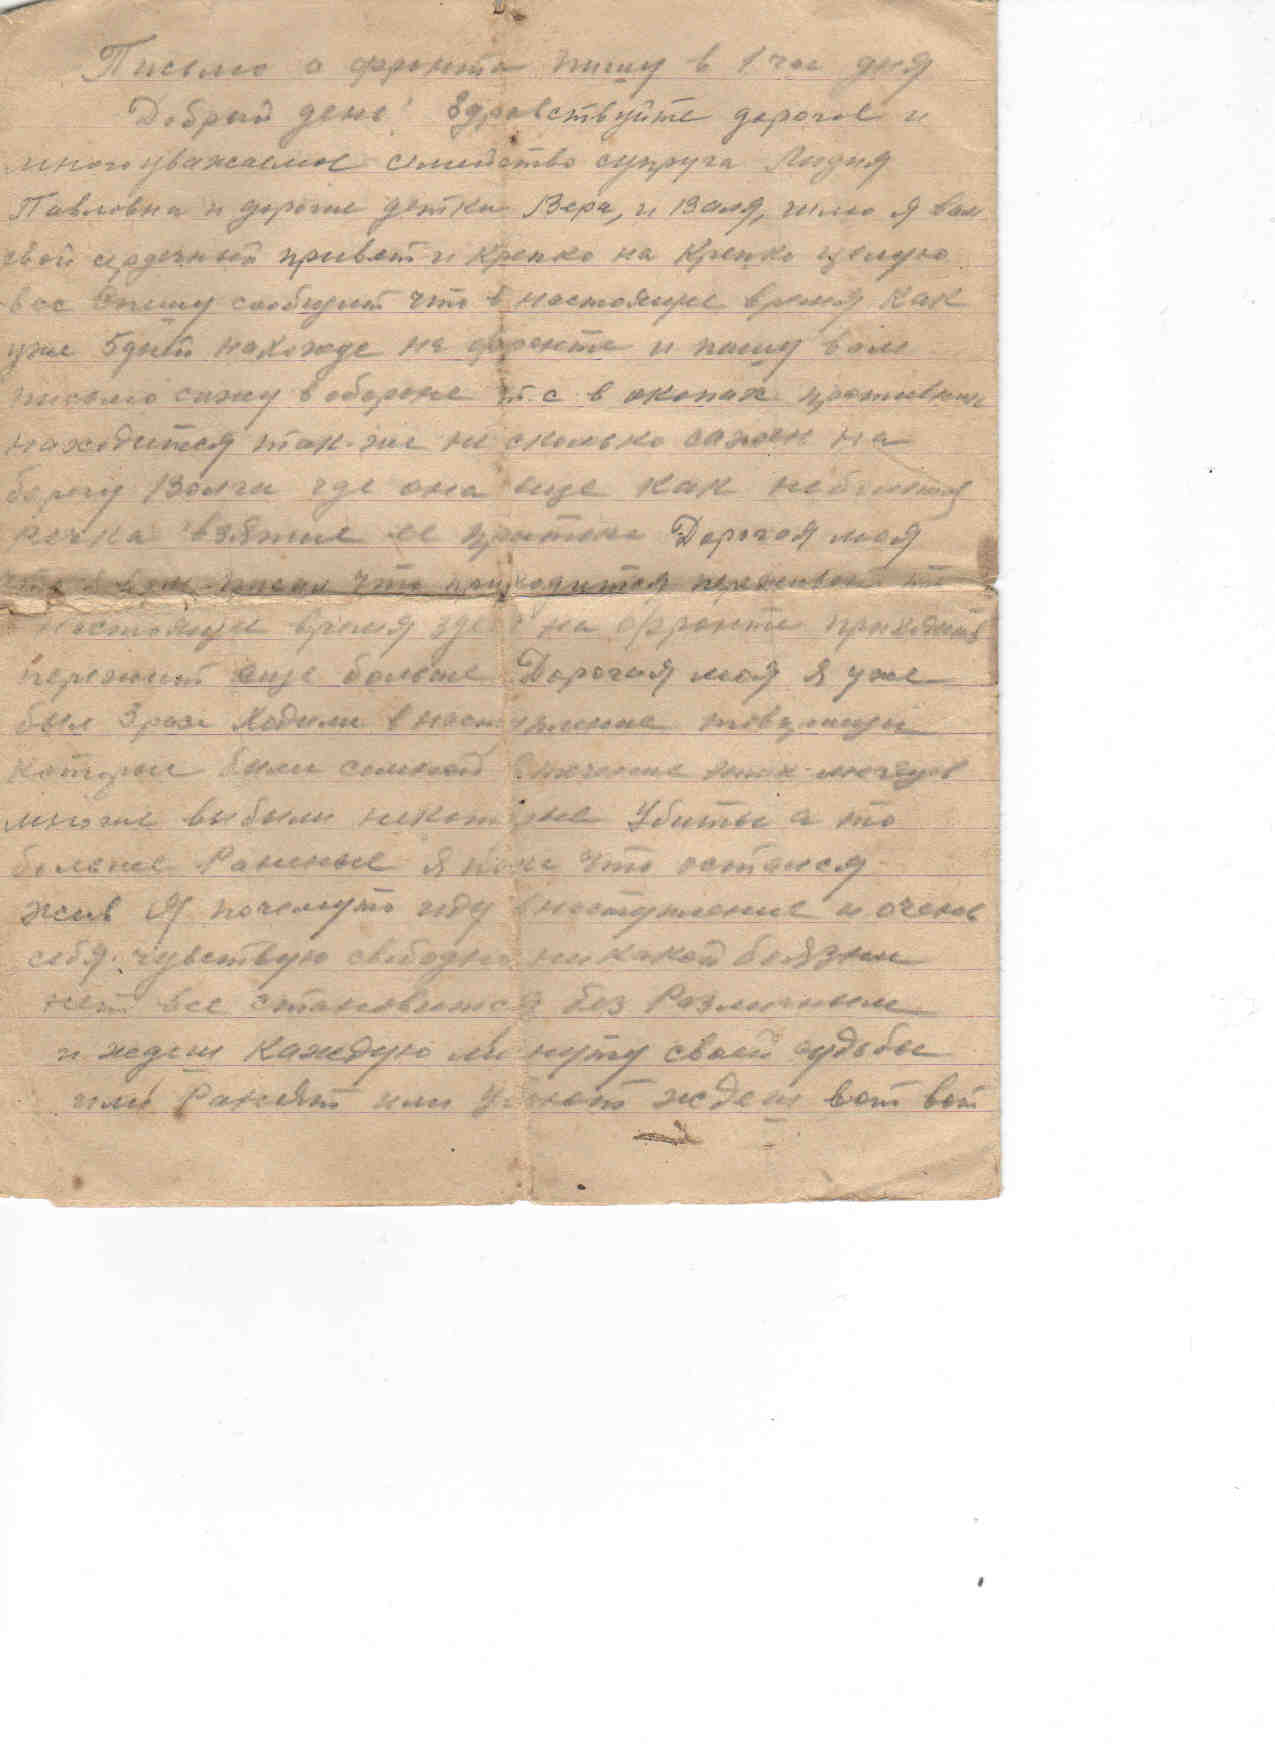 Письмо с фронта пишу в 1 час дня
Добрый день! Здравствуйте дорогое и
многоуважаемое семейство супруга Лидия
Павловна и дорогие детки Вера, и Валя, шлю я вам
свой сердечный привет и крепко на крепко целую
вас Спешу сообщит что в настоящие время как
уже 5 дней нахожде на фронте и пишу вам
письмо сижу в обороне т.е в окопах противник
находится так-же не сколько сажен на
берегу Волги где она еще как
речка взятие ее Дорогая моя
что приходится переживат
настоящие время здес на фронте приходится
пережит еще больше Дорогая моя я уже
был 3 раза ходили в наступление товарищи
которые были сомной
многие выбыли некоторые Убиты а то
больше Раненые я пока что остался
жив Я почемуто иду внаступление и очень
себя чувствую свободно никакой боязни
нет все становится без Различным
и ждеш каждую минуту своей судьбы
или Ранят или Убют ждеш вот вот